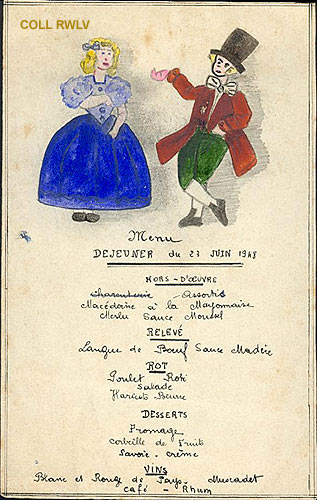 COLL RWLV
Menu
DEJEUNER du 23 JUIN 1948
HORS-D'ŒUVRE
Charcuterie Assortis
Macédoine à la Mayonnaise
Merlu Sauce
RELEVÉ
Langue de Bœuf Sauce Madère
ROT
Poulet Roti
Salade
Haricots Beurre
DESSERTS
Fromage
Corbeille de Fruits
Savoie - crème
VINS
Blanc et Rouge de Pays - Muscadet
Café - Rhum